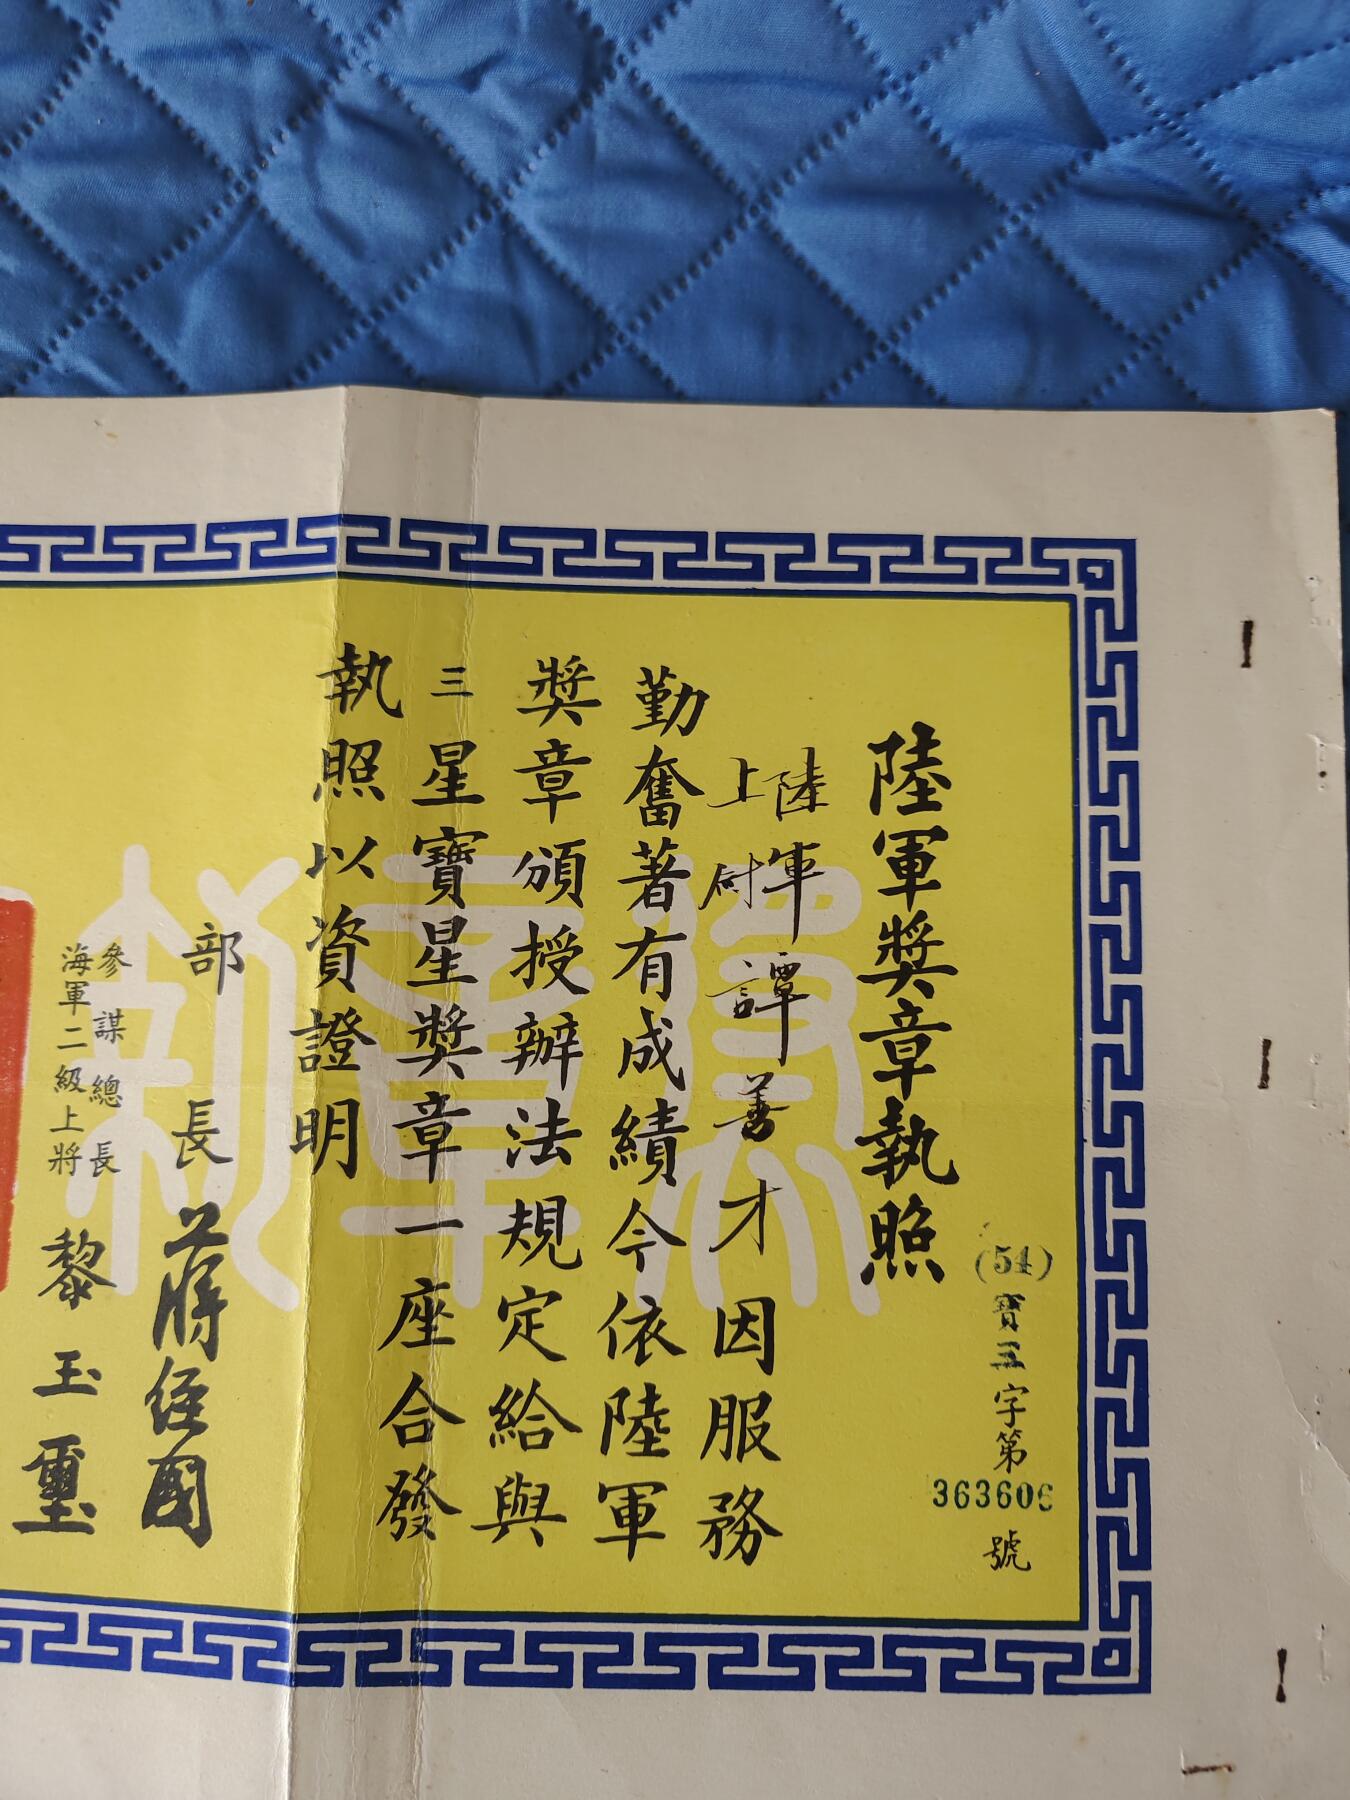 陸軍獎章執照
(54)
寶三字第
363606
號
陸軍
上尉
譚善才因服務
勤奮著有成績今依陸軍
獎章頒授辦法規定給與
三星寶星獎章一座合發
執照以資證明
部長蔣經國
參謀總長
海軍二級上將
黎玉璽